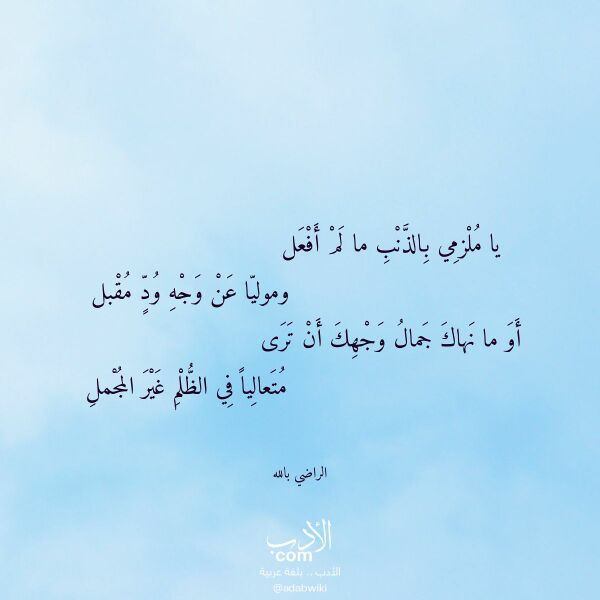 يا مُلْزمِي بِالذَّنْبِ ما لَمْ أَفْعَل
وموليّا عَنْ وَجْهِ وُدٍّ مُقْبل
أَوَ ما نَهاكَ جَمالُ وَجْهِكَ أَنْ تَرَى
مُتَعالِياً فِي الظُّلْمِ غَيْرَ المُجْملِ
الراضي بالله
الأدب
com
الأدب .. بلغة عربية
@adabwiki